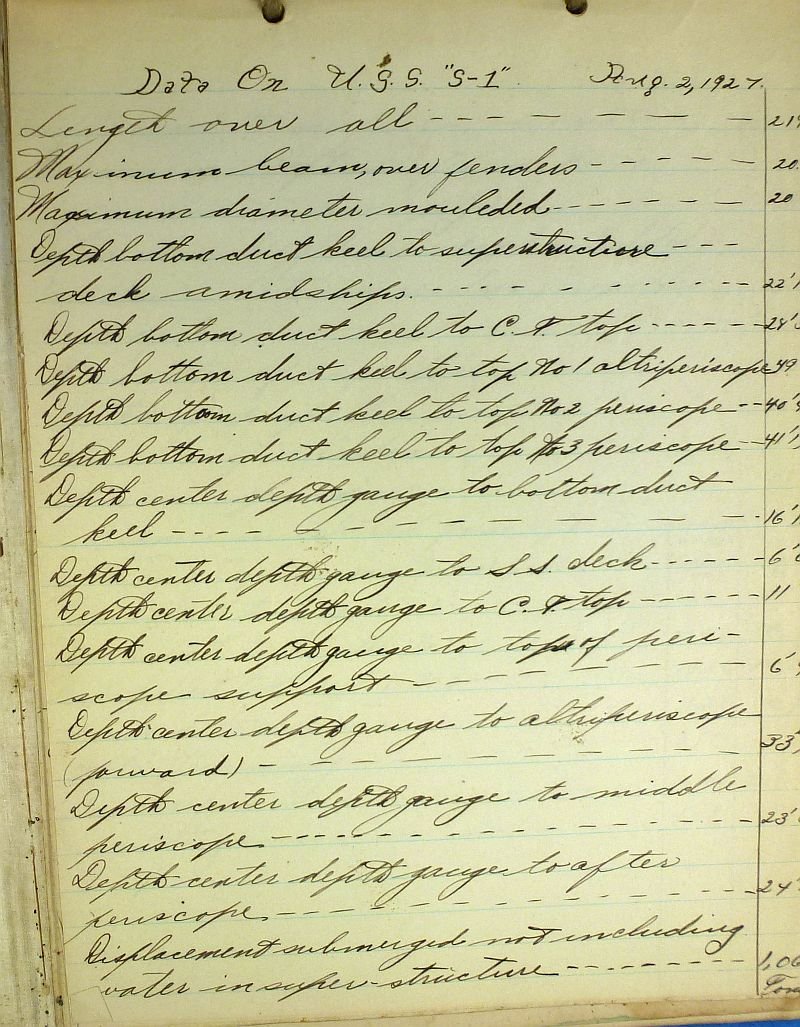 Data On U.S.S. "S-1". Aug. 2, 1927.
Length over all - - - - - - 219
Maximum beam, over fenders - - - - - 20
Maximum diameter moulded - - - - - - 20
Depth bottom duct keel to superstructure - - -
deck amidships. - - - - - - - - - 22'1
Depth bottom duct keel to C.T. top - - - - - 24'
Depth bottom duct keel to top No 1 altiperiscope 49
Depth bottom duct keel to top No 2 periscope - - 40'
Depth bottom duct keel to top No 3 periscope - 41'1
Depth center depth gauge to bottom duct
keel - - - - - - - - - - - 16'1
Depth center depth gauge to S.S. deck - - - - - - 6'
Depth center depth gauge to C.T. top - - - - - - 11
Depth center depth gauge to top of peri-
scope support - - - - - - - - - 6'
Depth center depth gauge to altiperiscope
(forward) - - - - - - - - - - 33
Depth center depth gauge to middle
periscope - - - - - - - - - - - 23'
Depth center depth gauge to after
periscope - - - - - - - - - - - 24'
Displacement submerged not including
water in super-structure - - - - - - - 1,06
Tons